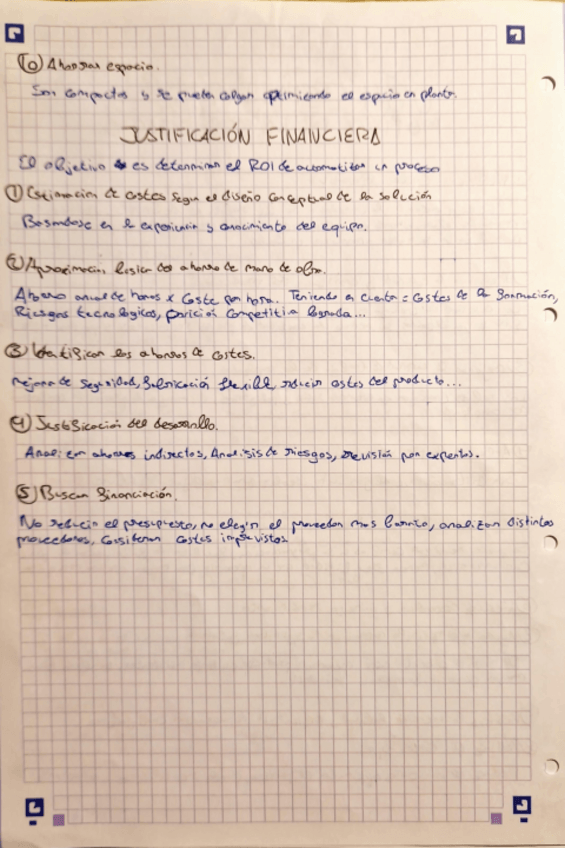 ⑩ Ahorrar espacio.
Son compactos y se pueden colgar optimizando el espacio en planta.
JUSTIFICACIÓN FINANCIERA
El objetivo es determinar el ROI de automatizar un proceso
① Estimación de costes según el diseño conceptual de la solución
Basandose en la experiencia y conocimiento del equipo.
② Aproximación básica del ahorro de mano de obra.
Ahorro anual de horas x Coste por hora. Teniendo en cuenta: Costes de la formación,
Riesgos tecnologicos, posición competitiva lograda...
③ Identificar los ahorros de costes.
Mejora de seguridad, fabricación flexible, reducir costes del producto...
④ Justificación del desarrollo.
Analizar ahorros indirectos, Analisis de riesgos, revisión por expertos.
⑤ Buscar financiación.
No reducir el presupuesto, no elegir el proveedor mas barato, analizar distintos
proveedores, considerar costes imprevistos